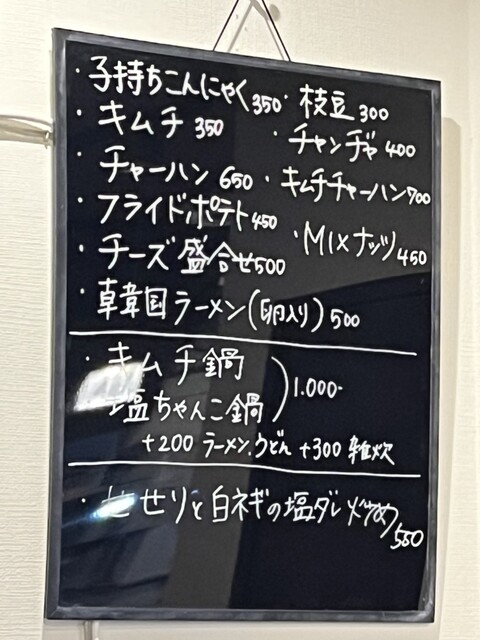 ・子持ちこんにゃく350
・枝豆300
・キムチ350
・チャンヂャ400
・チャーハン650
・キムチチャーハン700
・フライドポテト450
・MIXナッツ450
・チーズ盛合せ500
・韓国ラーメン(卵入り)500
・キムチ鍋
塩ちゃんこ鍋
1.000-
+200 ラーメン.うどん +300 雑炊
・せせりと白ネギの塩ダレ炒め550